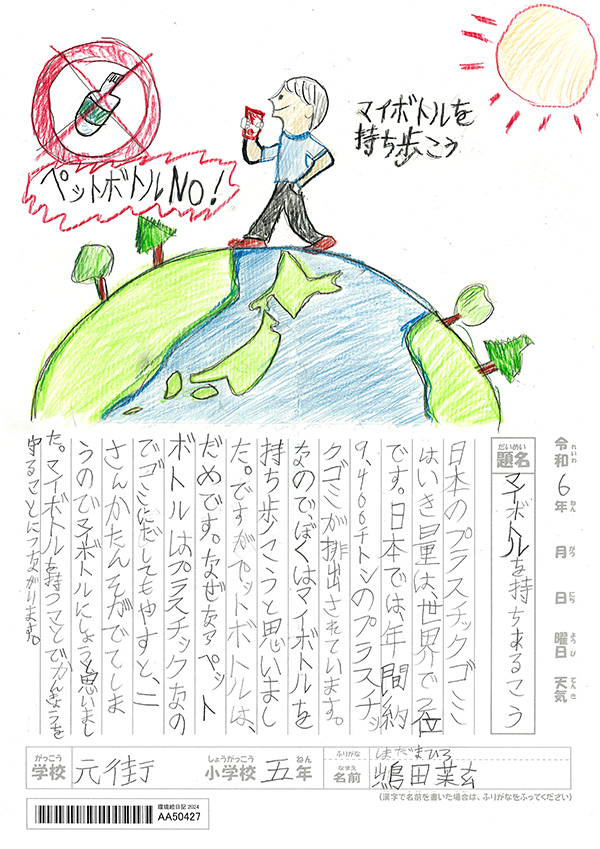 マイボトルを
持ち歩こう
ペットボトルNO!
令和6年 月 日 曜日 天気
れいわ ねん がつ にち ようび てんき
だいめい
題名
マイボトルを持ちあるこう
日本のプラスチックゴミ
はいき量は、世界で2位
です。日本では、年間約
9,400チトンのプラスチッ
クゴミが排出されています。
なので、ぼくはマイボトルを
持ち歩こうと思いまし
た。ですがペットボトルは、
だめです。なぜなら、ペット
ボトルはプラスチックなの
でゴミにだしてもやすと、二
さんかたんそがでてしま
うのでマイボトルにしようと思いまし
た。マイボトルを持つことでかんきょうを
守ることにつながります。
がっこう
学校 元街 小学校 五年
しょうがっこう ねん
ふりがな
なまえ
名前
田
(漢字で名前を書いた場合は、ふりがなをふってください)
環境絵日記 2024
AA50427